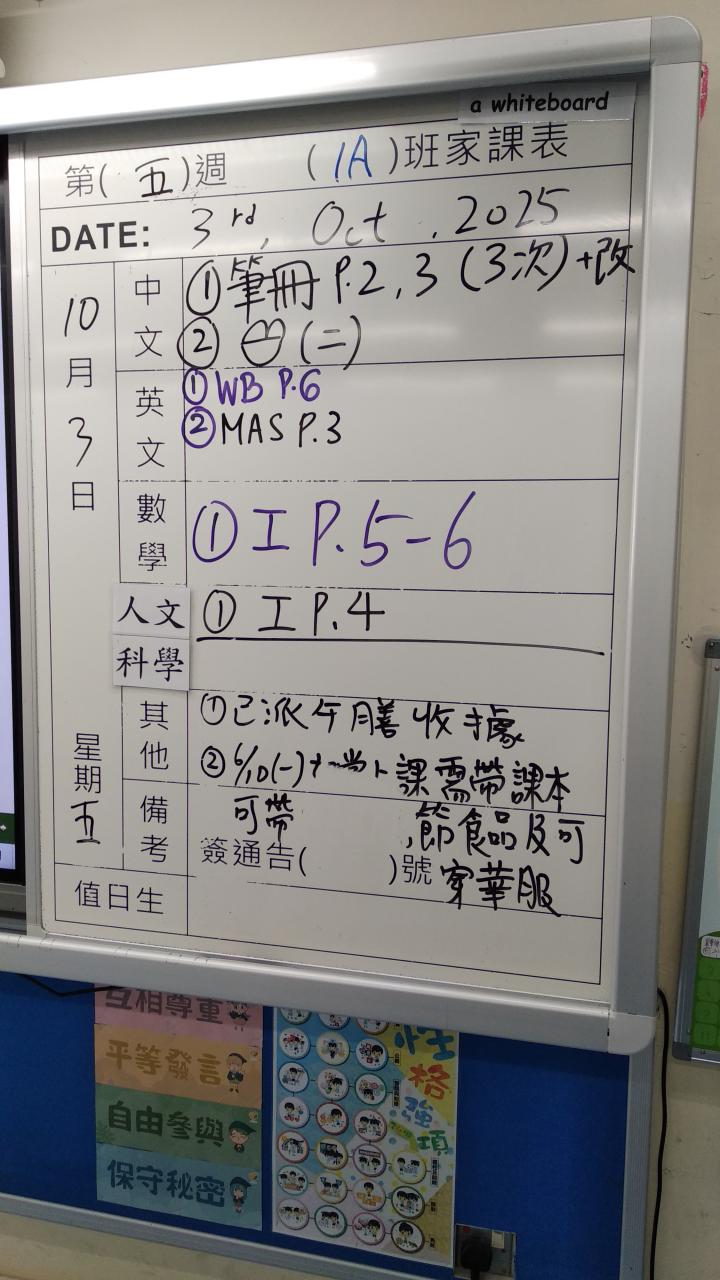 a whiteboard
第(五)週 (1A)班家課表
DATE: 3rd, Oct. 2025
10月3日
星期五
中文
①筆冊 P.2,3 (3次)+改
② (二)
英文
①WB P.6
②MAS P.3
數學
① 工 P.5-6
人文
① 工 P.4
科學
其他
①已派午膳收據
②6/10(一) 課需帶課本
備考
可帶 節食品及可
簽通告( )號 穿華服
值日生
互相尊重
平等發言
自由參與
保守秘密
性格強項